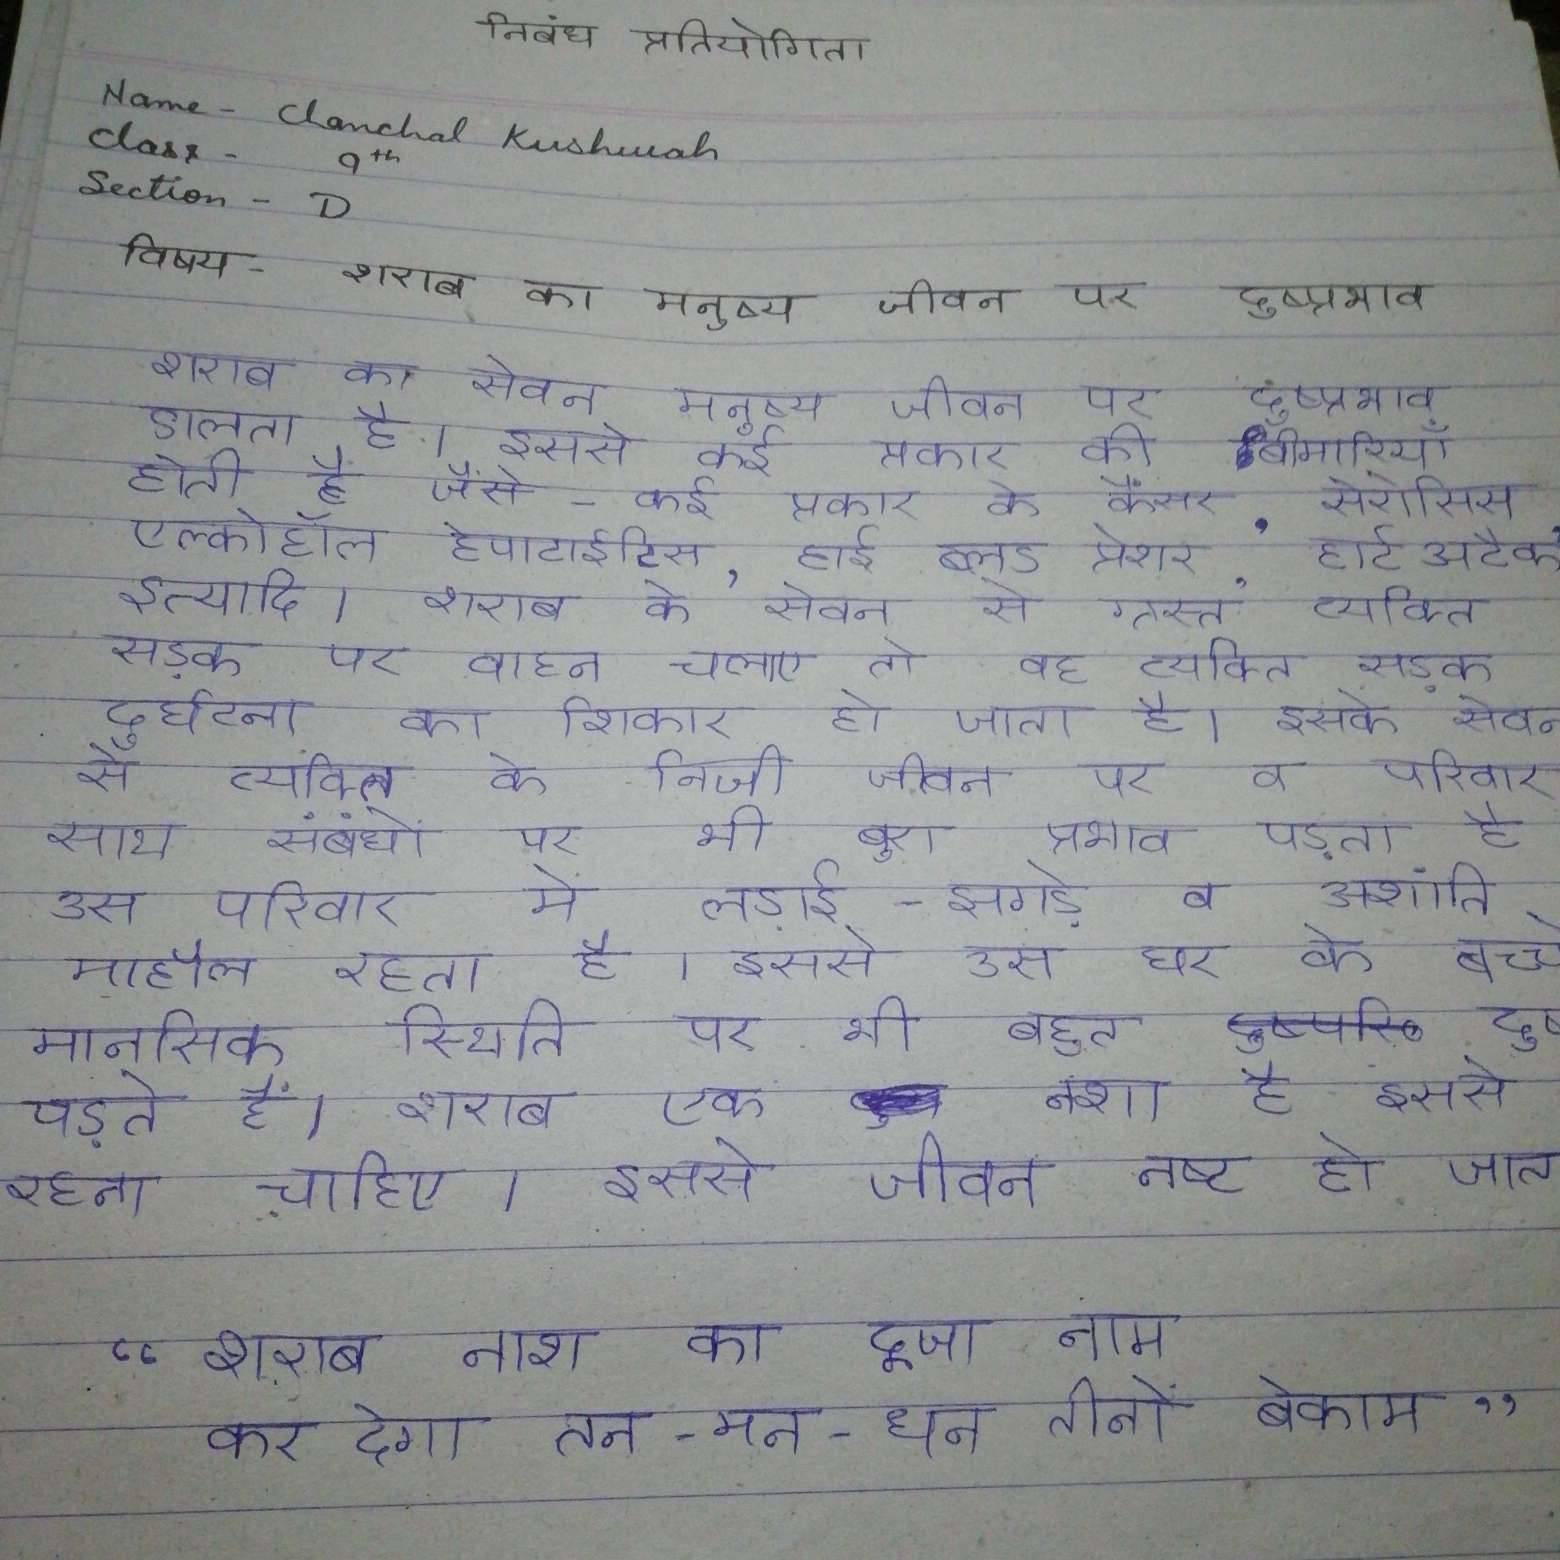 निबंध प्रतियोगिता
Name - Chanchal Kushwah
Class - 9th
Section - D
विषय - शराब का मनुष्य जीवन पर दुष्प्रभाव
शराब का सेवन मनुष्य जीवन पर दुष्प्रभाव
डालता है। इससे कई प्रकार की बीमारियाँ
होती हैं जैसे - कई प्रकार के कैंसर, सेरोसिस
एल्कोहॉल हेपाटाईटिस, हाई ब्लड प्रेशर, हार्ट अटैक
इत्यादि। शराब के सेवन से ग्रस्त व्यक्ति
सड़क पर वाहन चलाए तो वह व्यक्ति सड़क
दुर्घटना का शिकार हो जाता है। इसके सेवन
से व्यक्ति के निजी जीवन पर व परिवार
साथ संबंधों पर भी बुरा प्रभाव पड़ता है
उस परिवार में लड़ाई - झगड़े व अशांति
माहौल रहता है। इससे उस घर के बच्चे
मानसिक स्थिति पर भी बहुत
पड़ते हैं। शराब एक नशा है इससे
रहना चाहिए। इससे जीवन नष्ट हो जात
“ शराब नाश का दूजा नाम
कर देगा तन - मन - धन तीनों बेकाम ”